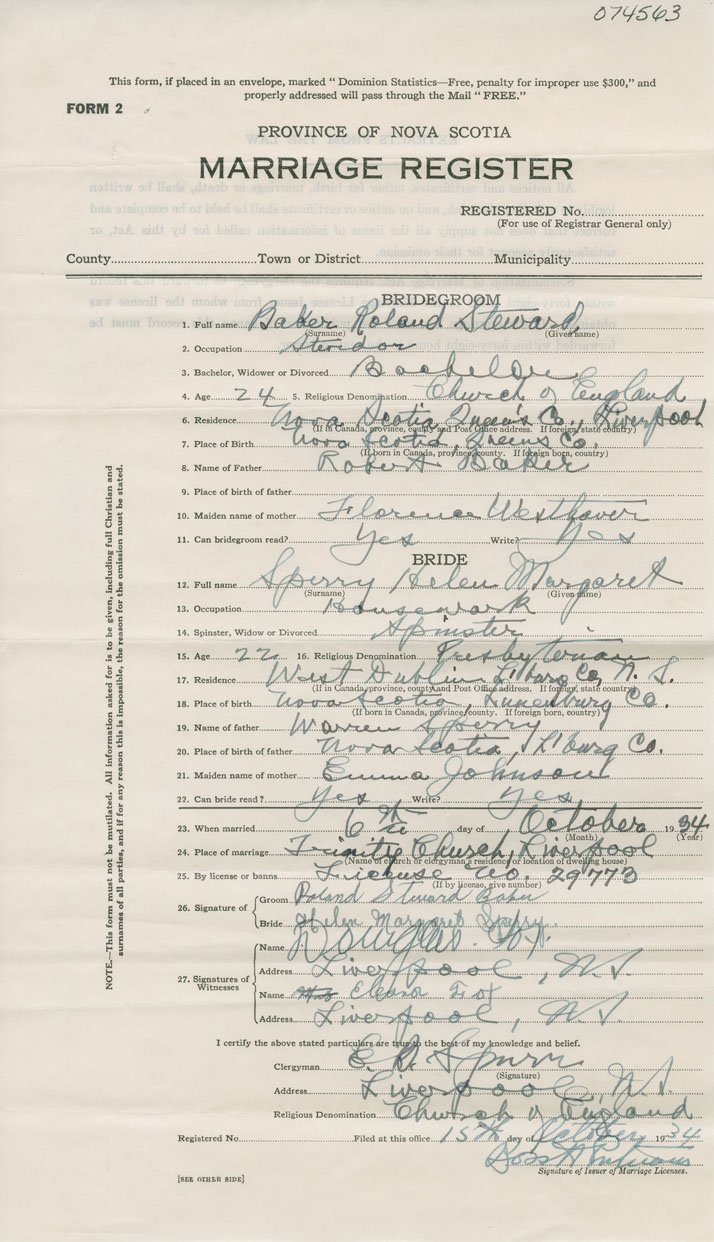 074563
This form, if placed in an envelope, marked " Dominion Statistics—Free, penalty for improper use $300," and
properly addressed will pass through the Mail " FREE."
FORM 2
PROVINCE OF NOVA SCOTIA
MARRIAGE REGISTER
REGISTERED No.
(For use of Registrar General only)
County Town or District Municipality
BRIDEGROOM
1. Full name Baker Roland Steward
(Surname) (Given name)
2. Occupation
3. Bachelor, Widower or Divorced Bachelor
4. Age 24 5. Religious Denomination Church of England
6. Residence Nova Scotia Queen's Co., Liverpool
(If in Canada, province, county and Post Office address. If foreign, state country)
7. Place of Birth Nova Scotia, Queens Co.
(If born in Canada, province, county. If foreign born, country)
8. Name of Father Robert Baker
9. Place of birth of father
10. Maiden name of mother Florence Westhaver
11. Can bridegroom read? Yes Write? Yes
BRIDE
12. Full name Sperry Helen Margaret
(Surname) (Given name)
13. Occupation Housework
14. Spinster, Widow or Divorced Spinster
15. Age 22 16. Religious Denomination Presbyterian
17. Residence West Dublin L'burg Co, N. S.
(If in Canada, province, county and Post Office address. If foreign, state country)
18. Place of birth Nova Scotia, Lunenburg Co.
(If born in Canada, province, county. If foreign born, country)
19. Name of father Warren Sperry
20. Place of birth of father Nova Scotia, L'burg Co.
21. Maiden name of mother Emma Johnson
22. Can bride read? Yes Write? Yes
23. When married 6th day of October 1934
(Month) (Year)
24. Place of marriage Trinity Church, Liverpool
(Name of church or clergyman's residence or location of dwelling house)
25. By license or banns License No. 29773
(If by license, give number)
26. Signature of
Groom Roland Steward Baker
Bride Helen Margaret Sperry
27. Signatures of Witnesses
Name
Address Liverpool, N.S.
Name Eleanor
Address Liverpool, N.S.
I certify the above stated particulars are true to the best of my knowledge and belief.
Clergyman E. D. Spurr
(Signature)
Address Liverpool, N.S.
Religious Denomination Church of England
Registered No. Filed at this office 15th day of October 1934
Signature of Issuer of Marriage Licenses.
[SEE OTHER SIDE]
NOTE.—This form must not be mutilated. All information asked for is to be given, including full Christian and
surnames of all parties, and if for any reason this is impossible, the reason for the omission must be stated.